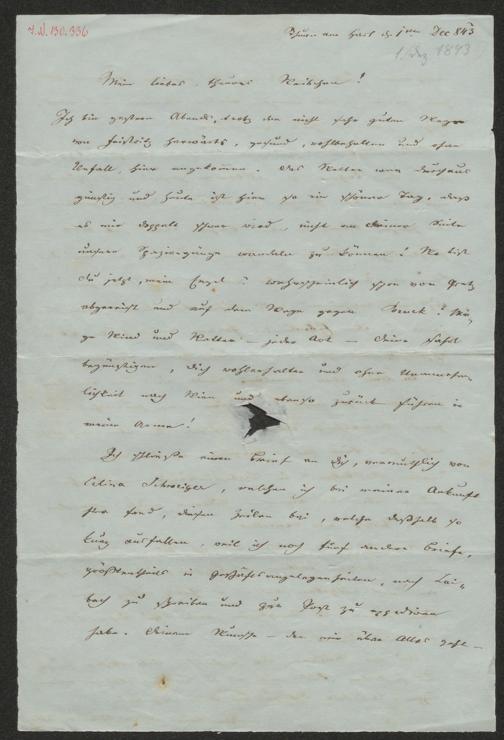 I.N. 130.336
Thurn am Hart d. 1ten Dec 843
1. Dez 1843
Mein liebes, theures Weibchen!
Ich bin gestern Abends, trotz der nicht sehr guten Wege
von Feistritz herwärts, gesund, wohlbehalten und ohne
Unfall, hier angekommen. Das Wetter war durchaus
günstig und heute ist hier so ein schöner Tag, daß
es mir doppelt schwer wird, nicht an Deiner Seite
unsere Spaziergänge wandeln zu können! Wo bist
Du jetzt, mein Engel? wahrscheinlich schon von Gratz
abgereist und auf dem Wege gegen Bruck! Mö-
ge Wind und Wetter – jeder Art – Deine Fahrt
begünstigen, Dich wohlerhalten und ohne Unannehm-
lichkeit nach Wien und ebenso zurück führen in
meine Arme!
Ich schließe einen Brief an Dich, vermuthlich von
Celina Schweiger, welchen ich bei meiner Ankunft
hier fand, diesen Zeilen bei, welche deßhalb so
kurz ausfallen, weil ich noch fünf andere Briefe,
größtentheils in Geschäftsangelegenheiten, nach Lai-
bach zu schreiben und zur Post zu expediren
habe. Deinem Wunsche – der mir über Alles geht –